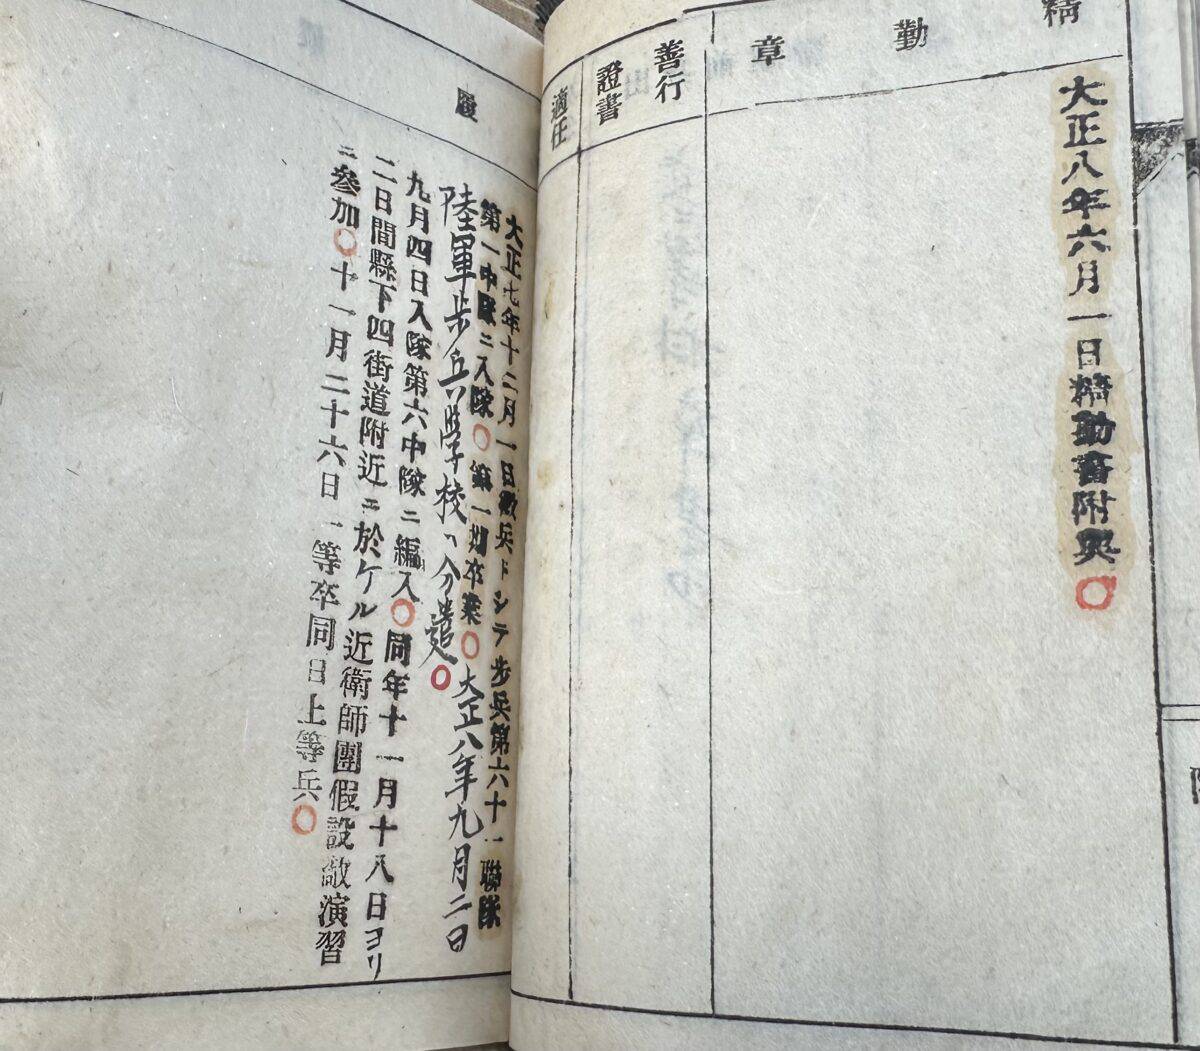 精勤章
大正八年六月一日精勤書附與〇
善行
證書
適任
履
大正七年十二月一日徴兵トシテ歩兵第六十一聯隊
第一中隊ニ入隊〇第一期卒業〇大正八年九月二日
陸軍歩兵學校ヘ分遣〇
九月四日入隊第六中隊ニ編入〇同年十一月十八日ヨリ
二日間縣下四街道附近ニ於ケル近衛師團假設敵演習
ニ參加〇十一月二十六日一等卒同日上等兵〇